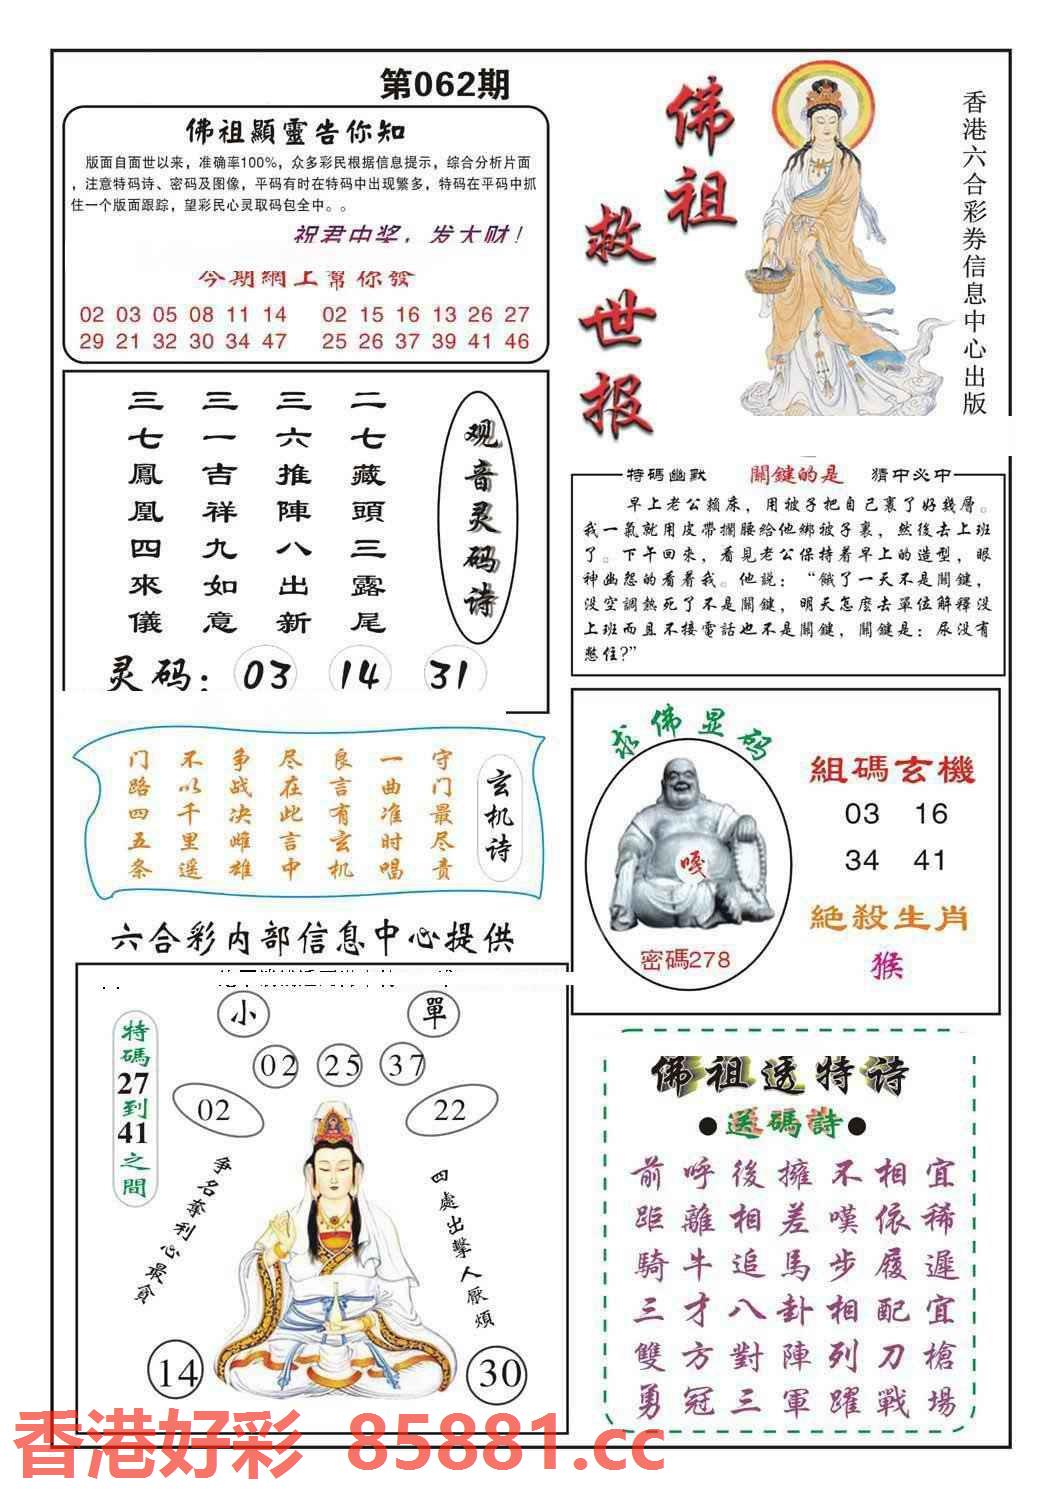 第062期
佛祖顯靈告你知
版面自面世以来，准确率100%，众多彩民根据信息提示，综合分析片面
，注意特码诗、密码及图像，平码有时在特码中出现繁多，特码在平码中抓
住一个版面跟踪，望彩民心灵取码包全中。。
祝君中奖，发大财！
今期網上幫你發
02 03 05 08 11 14 02 15 16 13 26 27
29 21 32 30 34 47 25 26 37 39 41 46
佛祖
救世报
香港六合彩券信息中心出版
观音灵码诗
二七藏頭三露尾
三六推陳八出新
三一吉祥九如意
三七鳳凰四來儀
灵码：03 14 31
特碼幽默 關鍵的是 猜中必中
早上老公賴床，用被子把自己裹了好幾層。
我一氣就用皮帶攔腰給他綁被子裹，然後去上班
了。下午回來，看見老公保持着早上的造型，眼
神幽怨的看着我。他説：“餓了一天不是關鍵，
没空調熱死了不是關鍵，明天怎麽去單位解釋没
上班而且不接電話也不是關鍵，關鍵是：尿没有
憋住？”
玄机诗
守门最尽责
一曲准时唱
良言有玄机
尽在此言中
争战决雌雄
不以千里遥
门路四五条
求佛显码
嘎
密碼278
組碼玄機
03 16
34 41
絶殺生肖
猴
六合彩内部信息中心提供
特碼27到41之間
小 單
02 25 37
02 22
争名奪利心最貪
四處出擊人厭煩
14 30
佛祖透特诗
●送碼詩●
前呼後擁不相宜
距離相差嘆依稀
騎牛追馬步履遲
三才八卦相配宜
雙方對陣列刀槍
勇冠三軍躍戰場
香港好彩 85881.cc